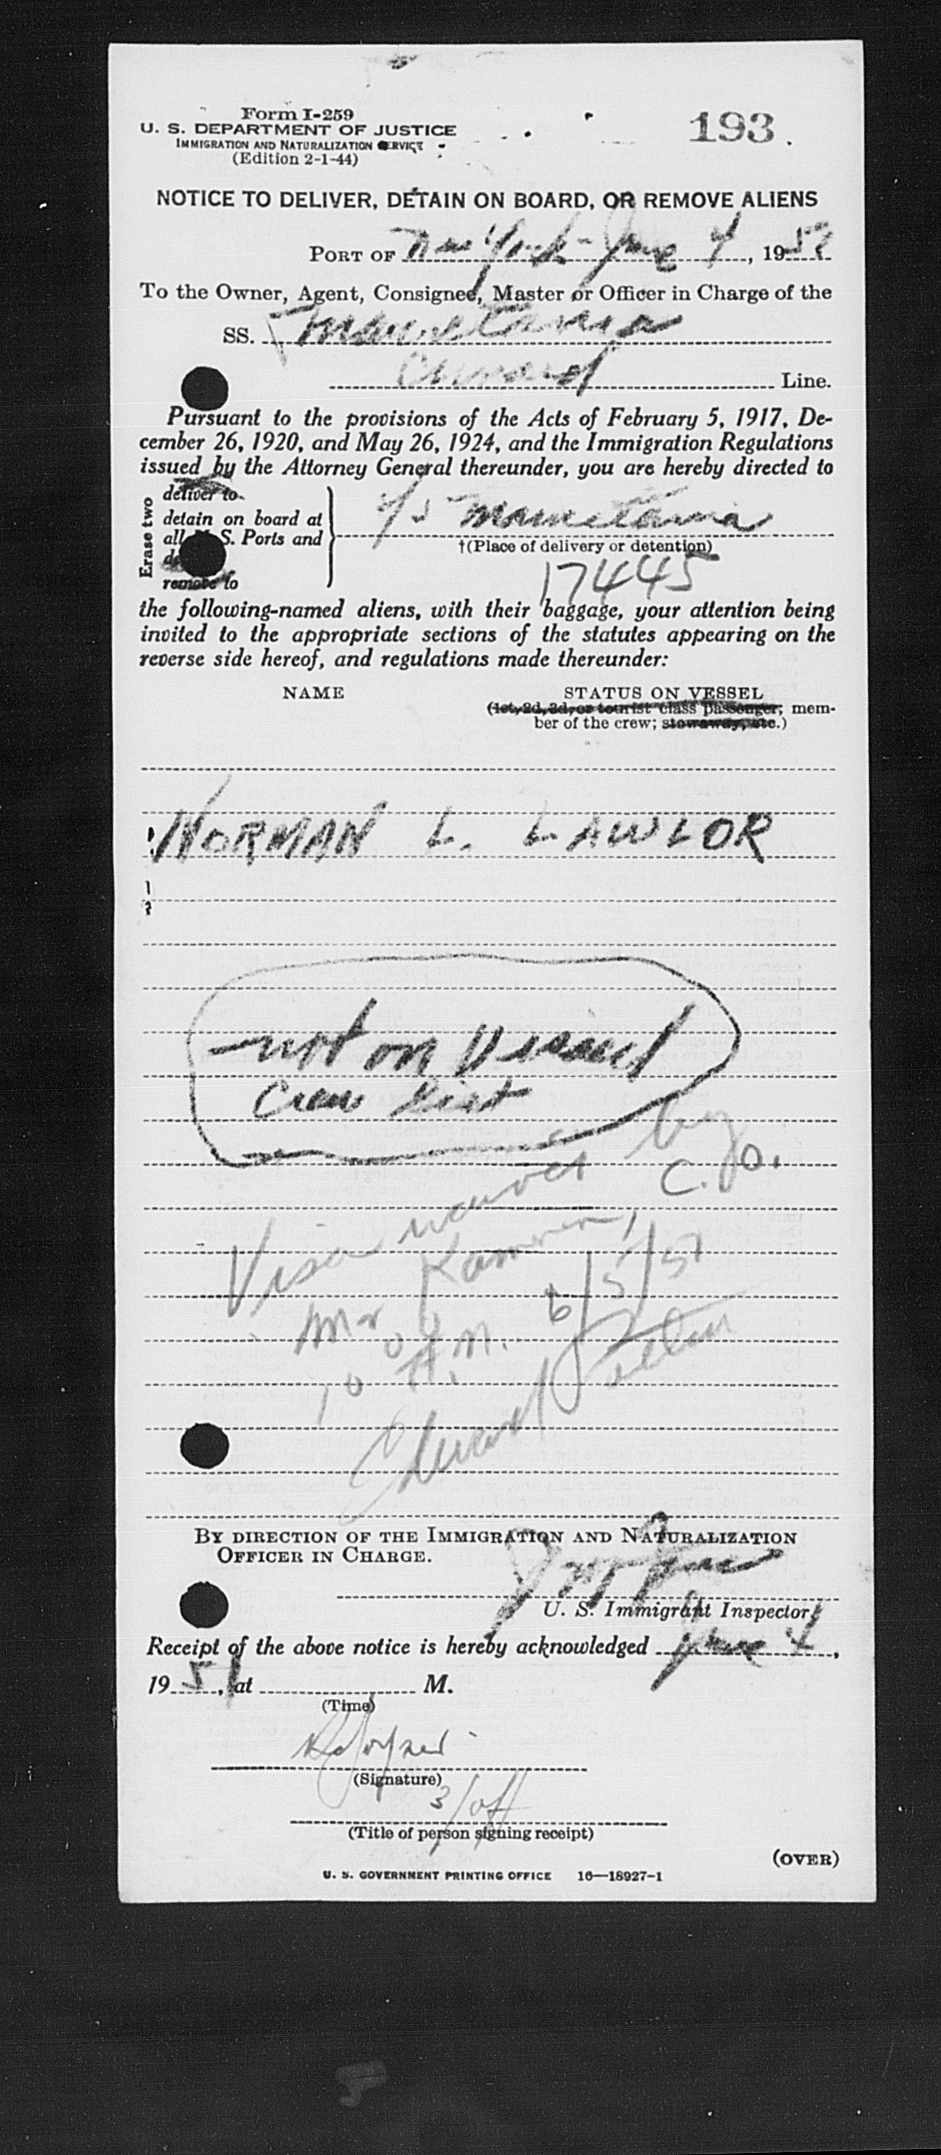 Form I-259
U. S. DEPARTMENT OF JUSTICE
IMMIGRATION AND NATURALIZATION SERVICE
(Edition 2-1-44)
193
NOTICE TO DELIVER, DETAIN ON BOARD, OR REMOVE ALIENS
PORT OF New York - June 4, 1951
To the Owner, Agent, Consignee, Master or Officer in Charge of the
SS. Mauretania
Cunard Line.
Pursuant to the provisions of the Acts of February 5, 1917, De-
cember 26, 1920, and May 26, 1924, and the Immigration Regulations
issued by the Attorney General thereunder, you are hereby directed to
Erase two
deliver to
detain on board at
all U. S. Ports and
remove to
S/S Mauretania
†(Place of delivery or detention)
17445
the following-named aliens, with their baggage, your attention being
invited to the appropriate sections of the statutes appearing on the
reverse side hereof, and regulations made thereunder:
NAME
STATUS ON VESSEL
(1st, 2d, 3d, or tourist class passenger; mem-
ber of the crew; stowaway, etc.)
NORMAN L. LAWLOR
not on Vessel
Crew List
Visa waived by
C.O.
Mr 6/5/51
10 00 A.M.
Edward
BY DIRECTION OF THE IMMIGRATION AND NATURALIZATION
OFFICER IN CHARGE.
U. S. Immigrant Inspector.
Receipt of the above notice is hereby acknowledged June 4,
1951, at M.
(Time)
(Signature)
3/off
(Title of person signing receipt)
(OVER)
U. S. GOVERNMENT PRINTING OFFICE 16—18927-1